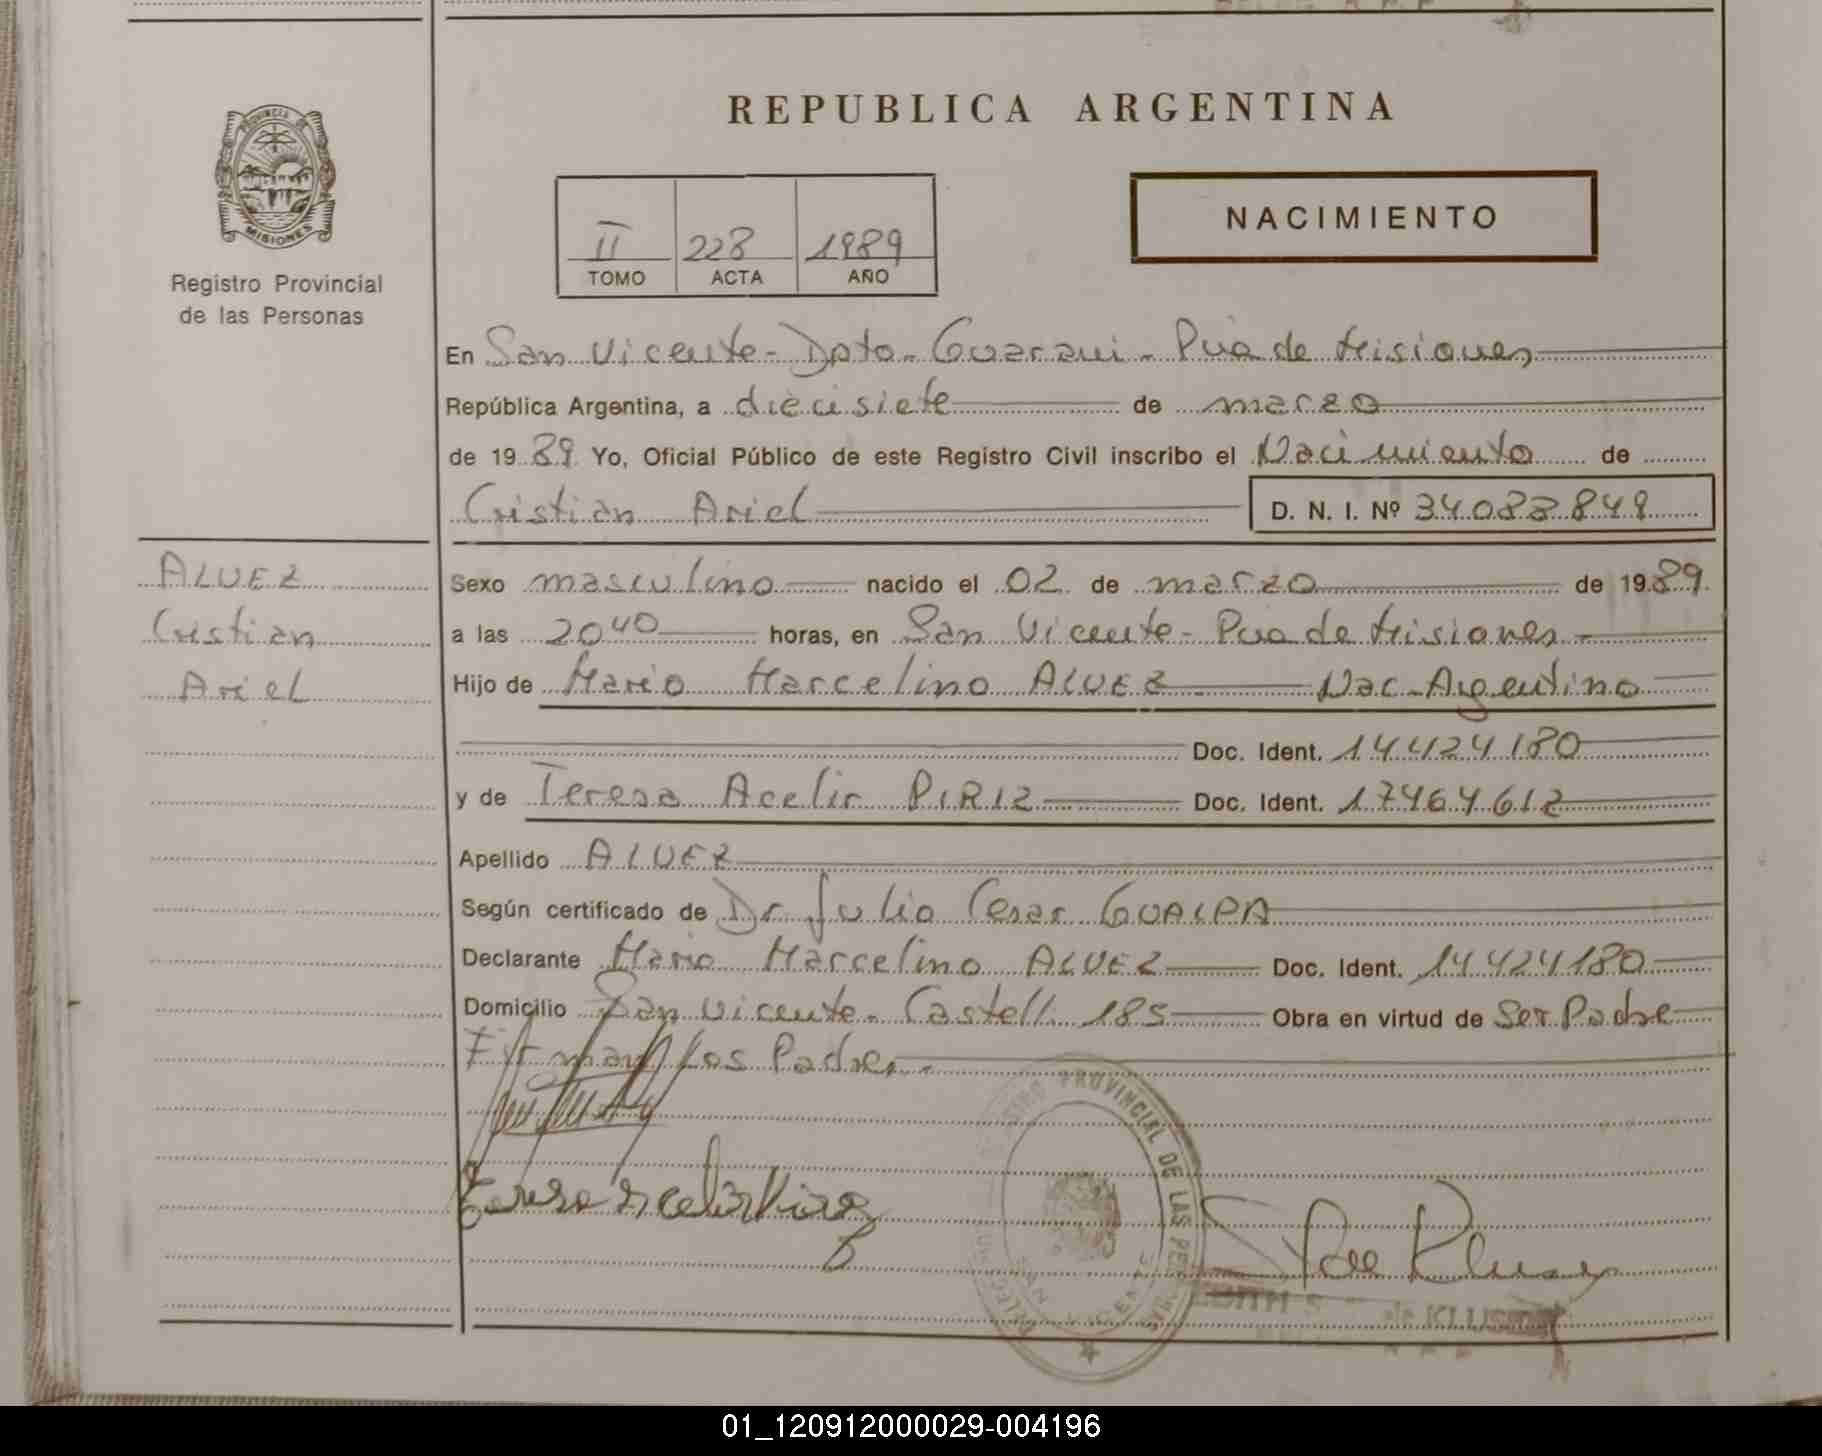 REPUBLICA ARGENTINA
PROVINCIA DE
MISIONES
Registro Provincial
de las Personas
NACIMIENTO
II 228 1989
TOMO ACTA AÑO
En San Vicente - Dpto - Guarani - Pcia de Misiones
República Argentina, a diecisiete de marzo
de 1989 Yo, Oficial Público de este Registro Civil inscribo el Nacimiento de
Cristian Ariel D. N. I. Nº 34.088.848
ALVEZ
Cristian
Ariel
Sexo masculino nacido el 02 de marzo de 1989.
a las 20 40 horas, en San Vicente - Pcia de Misiones -
Hijo de Mario Marcelino ALVEZ Nac - Argentino
Doc. Ident. 14424180
y de Teresa Acelir PIRIZ Doc. Ident. 17464612
Apellido ALVEZ
Según certificado de Dr. Julio Cesar GUALPA
Declarante Mario Marcelino ALVEZ Doc. Ident. 14424180
Domicilio San Vicente - Castelli 185 Obra en virtud de Ser Padre
Firman los Padres.
PROVINCIAL DE LAS
01_120912000029-004196